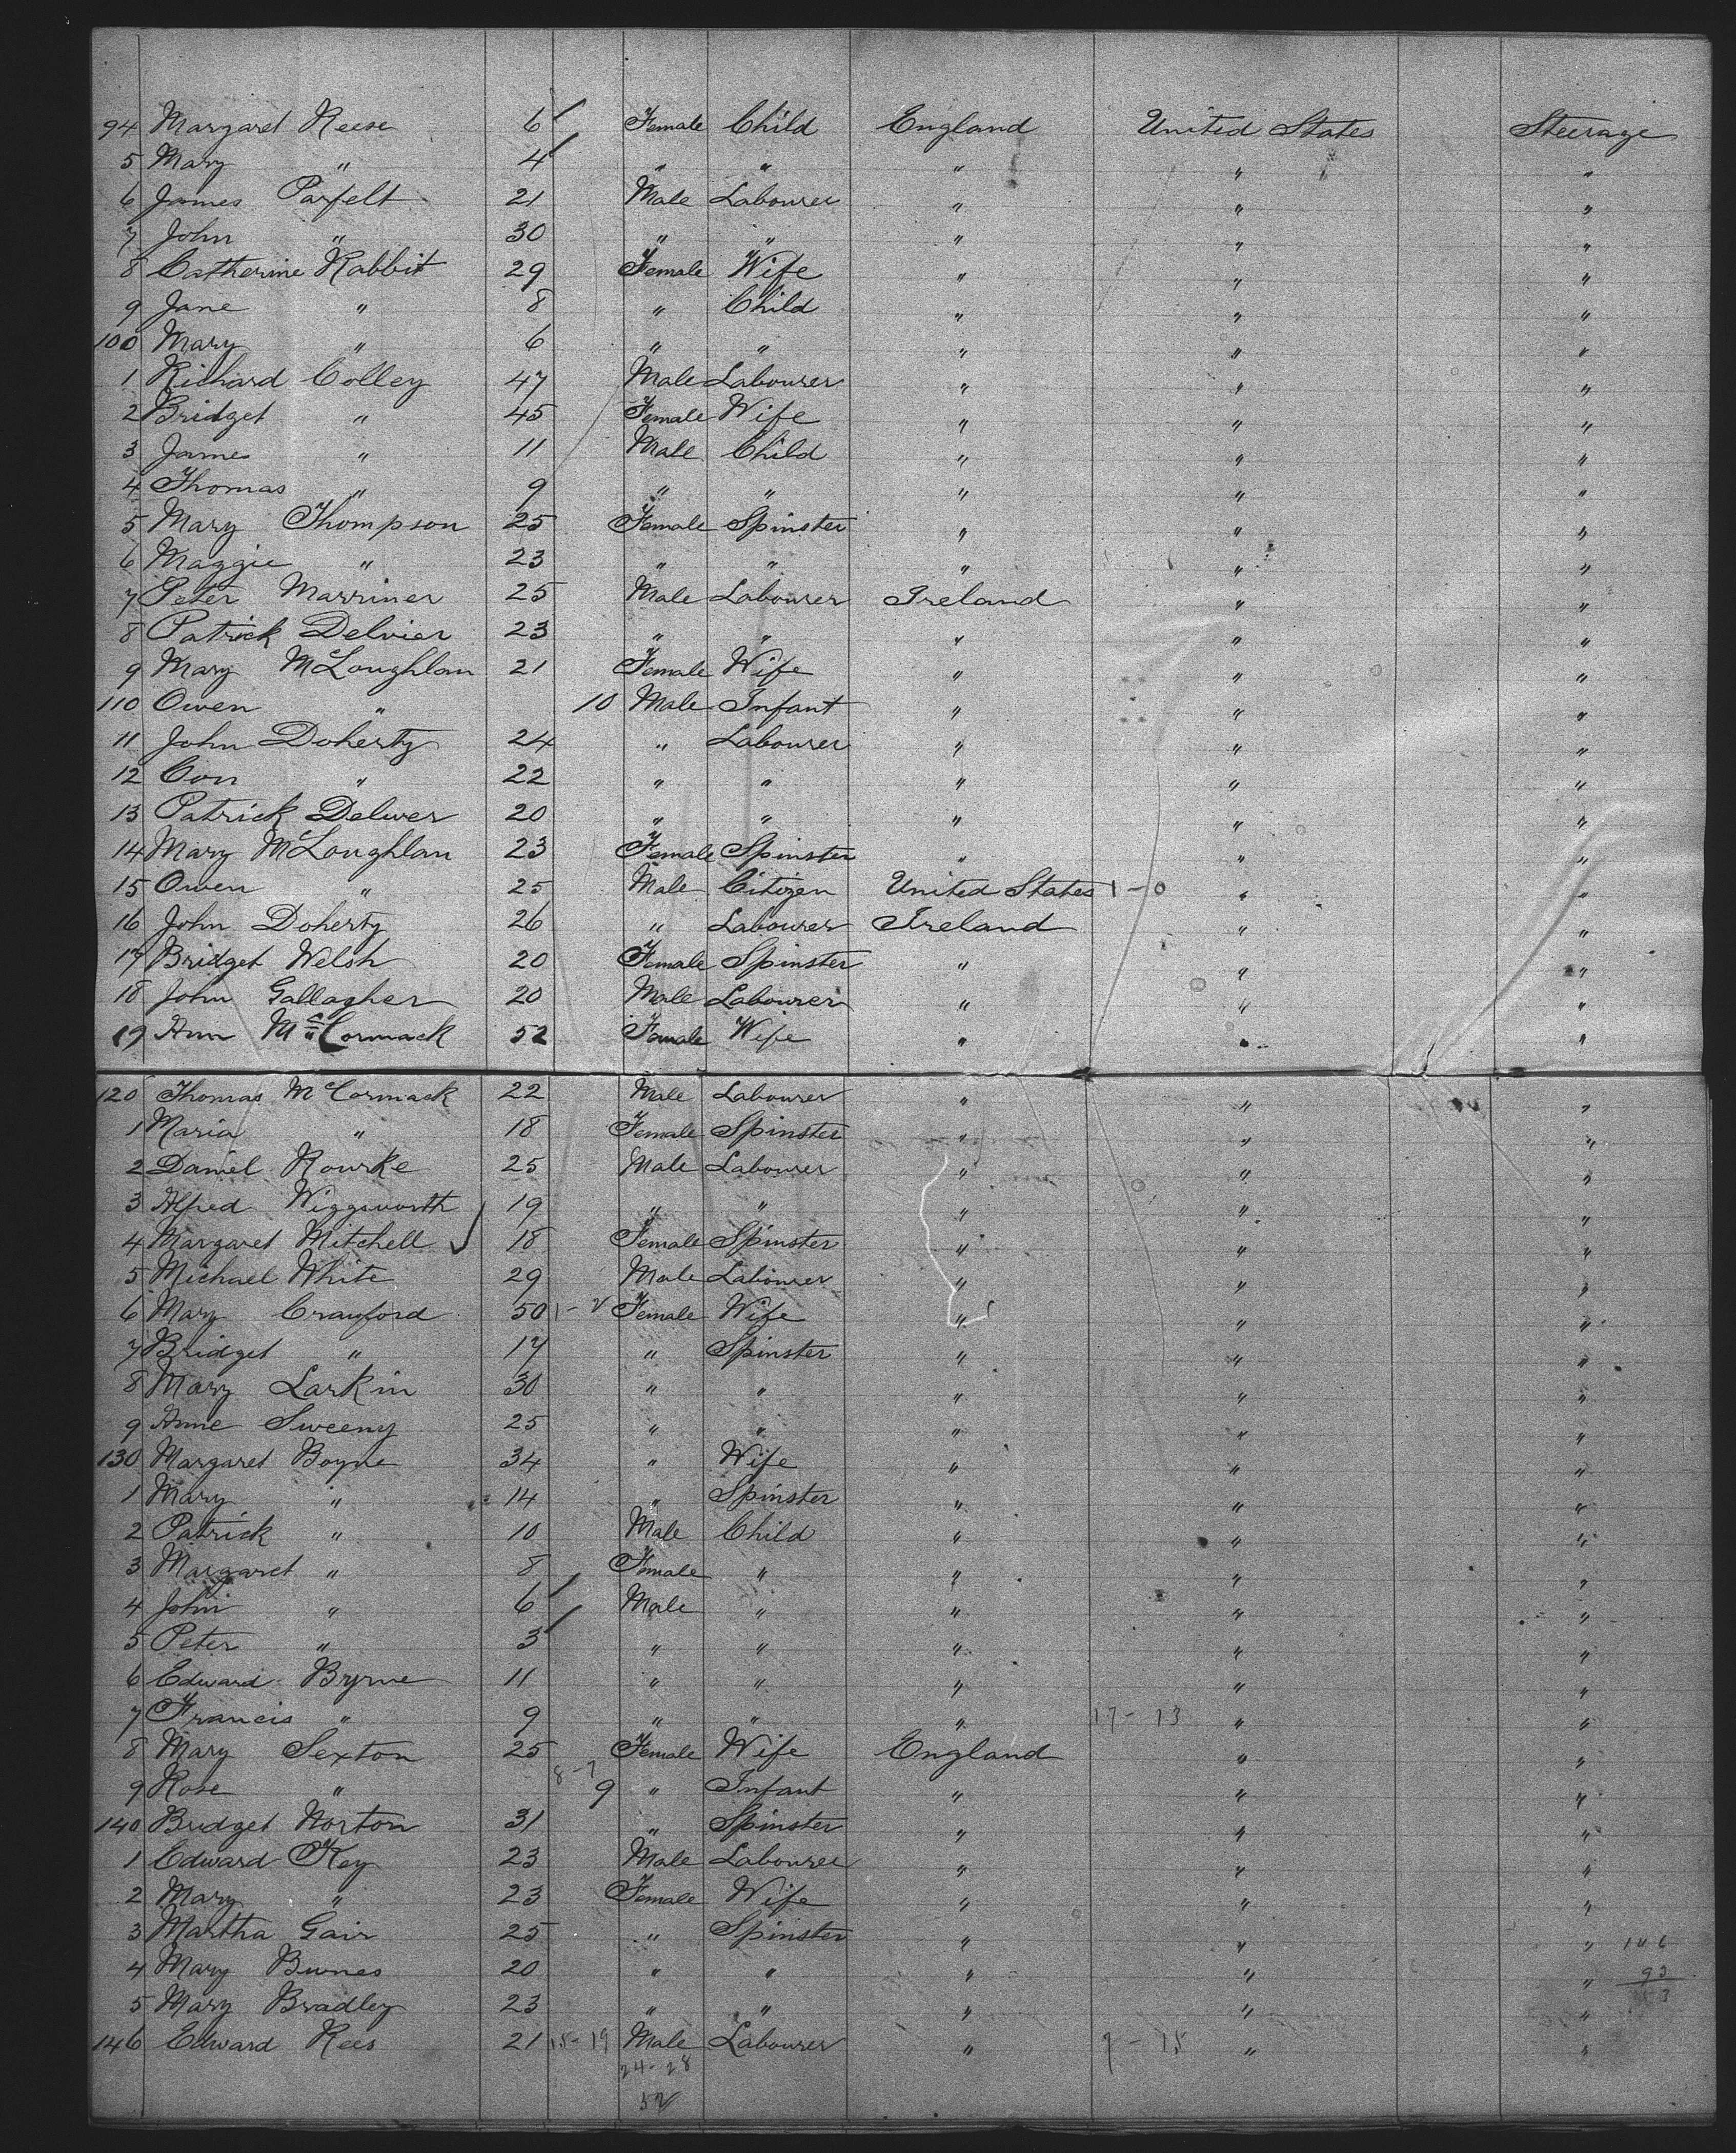 94 Margaret Reese 6 Female Child England United States Steerage
5 Mary " 4 " " " " "
6 James Parfelt 21 Male Labourer " " "
7 John " 30 " " " " "
8 Catherine Rabbit 29 Female Wife " " "
9 Jane " 8 " Child " " "
100 Mary " 6 " " " " "
1 Richard Colley 47 Male Labourer " " "
2 Bridget " 45 Female Wife " " "
3 James " 11 Male Child " " "
4 Thomas " 9 " " " " "
5 Mary Thompson 25 Female Spinster " " "
6 Maggie " 23 " " " " "
7 Peter Marriner 25 Male Labourer Ireland " "
8 Patrick Delvier 23 " " " " "
9 Mary McLoughlan 21 Female Wife " " "
110 Owen " 10 Male Infant " " "
11 John Doherty 24 " Labourer " " "
12 Con " 22 " " " " "
13 Patrick Delwer 20 " " " " "
14 Mary McLoughlan 23 Female Spinster " " "
15 Owen " 25 Male Citizen United States 1-0 " "
16 John Doherty 26 " Labourer Ireland " "
17 Bridget Welsh 20 Female Spinster " " "
18 John Gallagher 20 Male Labourer " " "
19 Ann McCormack 52 Female Wife " " "
120 Thomas McCormack 22 Male Labourer " " "
1 Maria " 18 Female Spinster " " "
2 Daniel Rourke 25 Male Labourer " " "
3 Alfred Wiggsworth 19 " " " " "
4 Margaret Mitchell 18 Female Spinster " " "
5 Michael White 29 Male Labourer " " "
6 Mary Crawford 50 1-2 Female Wife " " "
7 Bridget " 17 " Spinster " " "
8 Mary Larkin 30 " " " " "
9 Anne Sweeny 25 " " " " "
130 Margaret Boyne 34 " Wife " " "
1 Mary " 14 " Spinster " " "
2 Patrick " 10 Male Child " " "
3 Margaret " 8 Female " " " "
4 John " 6 Male " " " "
5 Peter " 3 " " " " "
6 Edward Byrne 11 " " " " "
7 Francis " 9 " " " 17-13 " "
8 Mary Sexton 25 Female Wife England " "
9 Rose " 8-7 9 " Infant " " "
140 Bridget Norton 31 " Spinster " " "
1 Edward Key 23 Male Labourer " " "
2 Mary " 23 Female Wife " " "
3 Martha Gair 25 " Spinster " " " 146
4 Mary Burnes 20 " " " " " 93
5 Mary Bradley 23 " " " " "
146 Edward Rees 21 15-19 Male Labourer " 9-15 " "
24-28
52